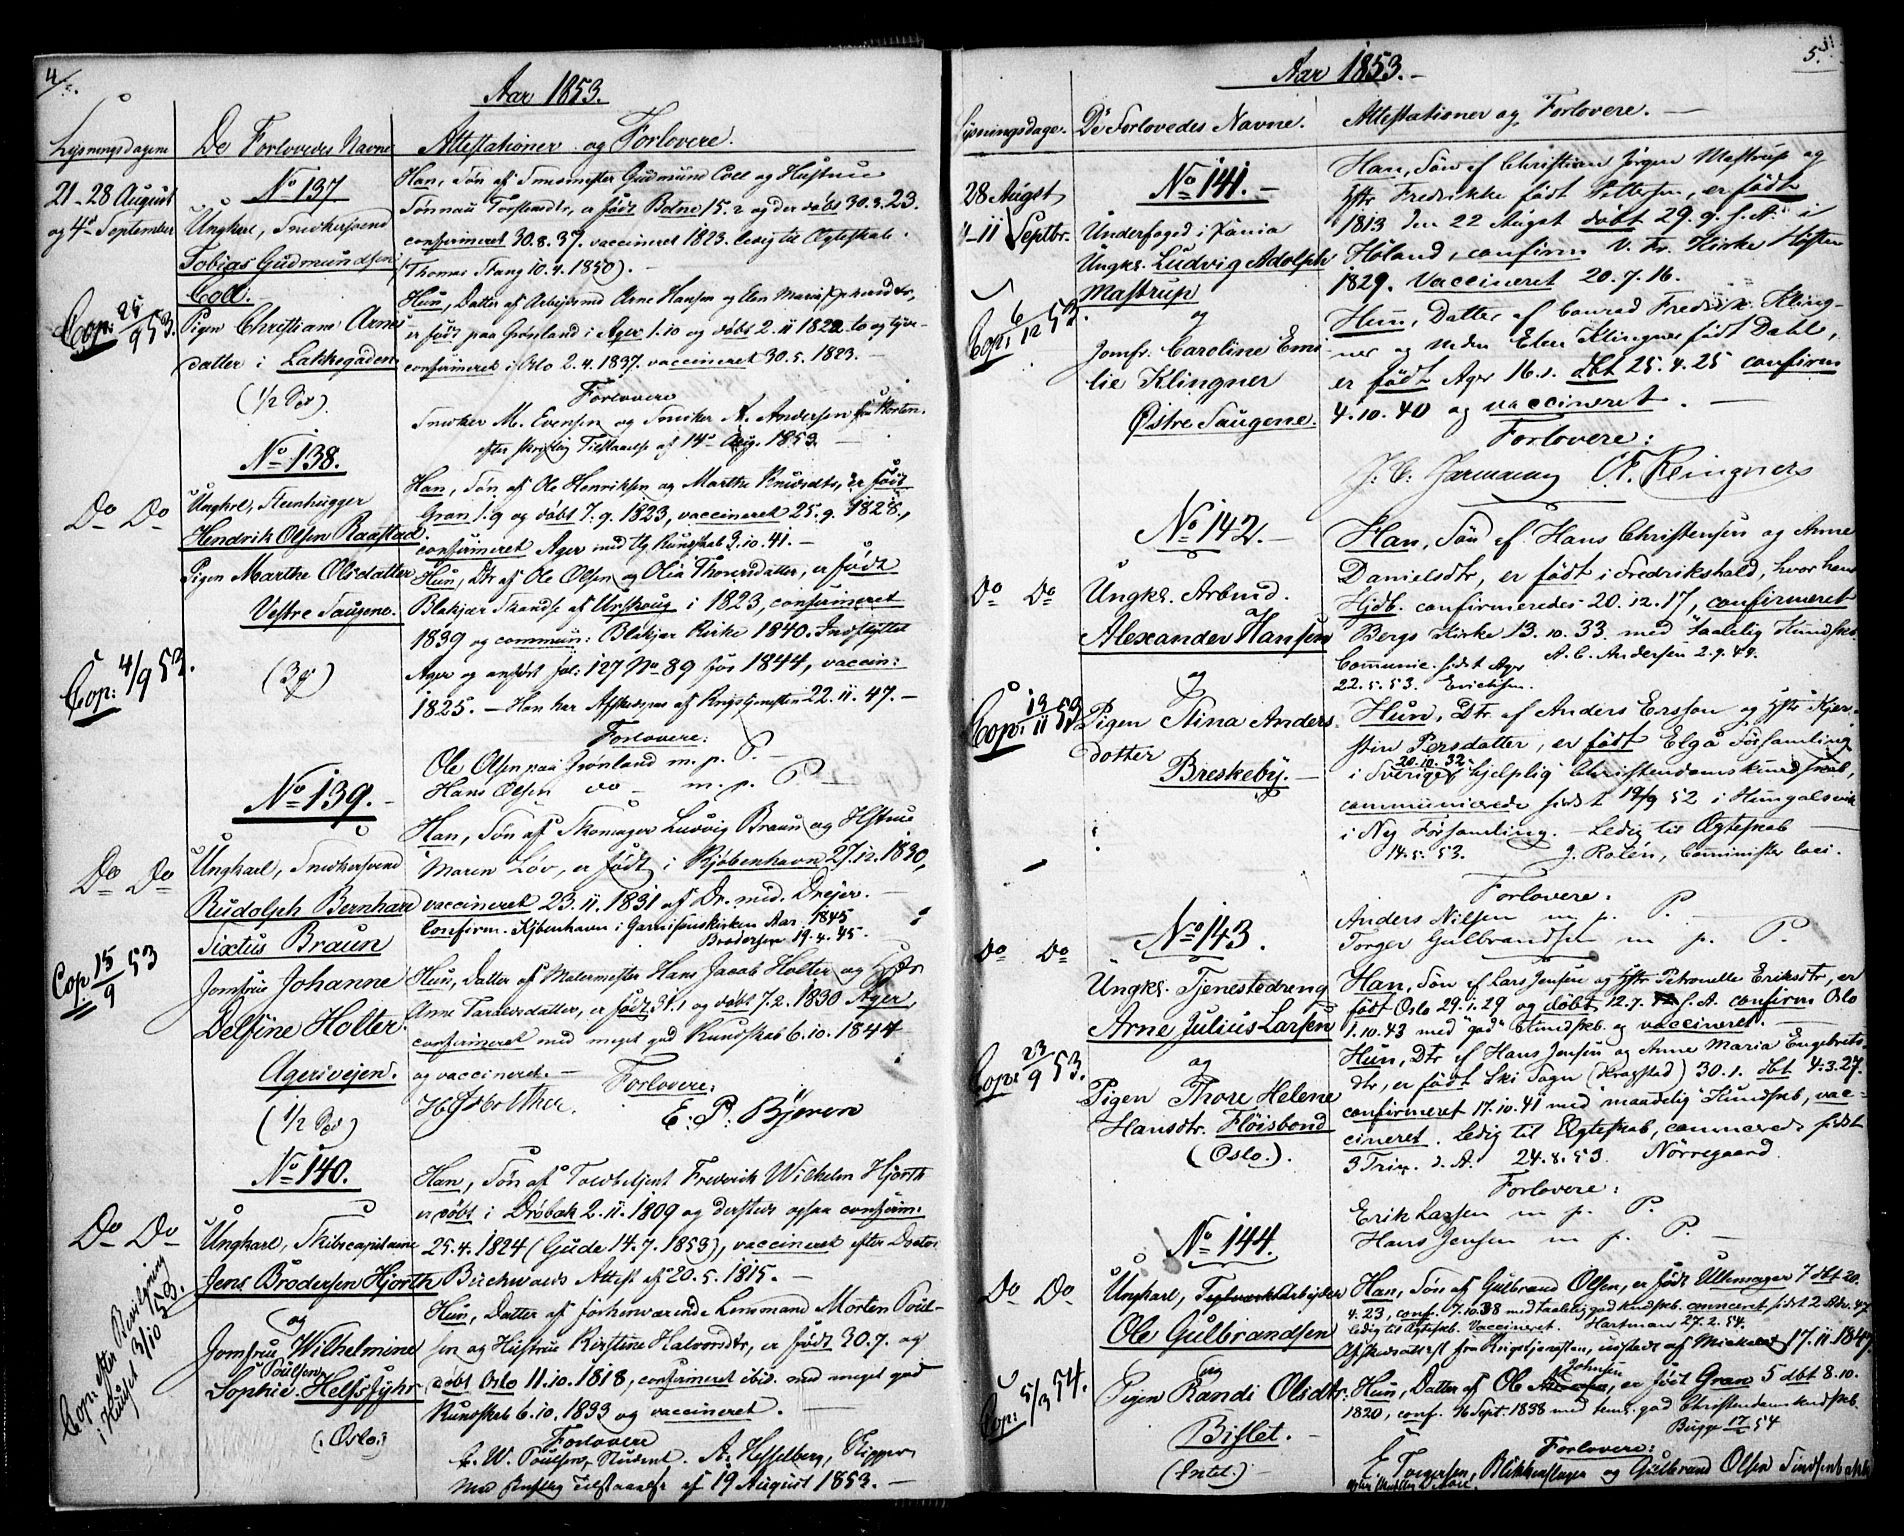 4
Aar 1853.
Lysningsdagene
De Forlovedes Navne
Attestationer og Forlovere.
21-28 August
og 4de September
No 137
Ungkarl, Snedkersvend
Tobias Gudmundsen
Coll.
Pigen Christiane Arnes
datter i Lakkegaden
(1/2 )
Cop: 25/9 53.
Han, Søn af Gudmund Coll og Hustrue
Torstensdtr, er født Botne 15.2 og der døbt 30.3.23.
confirmeret 30.8.37. vaccineret 1823. ledig til Ægteskab.
(Thomas Stang 10.4.1850).
Hun, Datter af Arbeidsmd Arne Hansen og Elen Maria
er født paa Grønland i Ager 1.10 og døbt 2.11 1822 to og tyve
confirmeret i Oslo 2.4.1837. vaccineret 30.5.1823.
Forlovere
Snedker M. Evensen og Snedker A. Andersen fra Horten.
efter skriftlig Tilstaaelse af 14de Aug. 1853.
No 138.
Do Do
Ungkrl, Steenhugger
Hendrik Olsen Raastad.
Pigen Marthe Olsdatter
Vestre Saugene.
(3 )
Cop: 4/9 53.
Han, Søn af Ole Henriksen og Marthe Knudsdtr, er født
Gran 1.9 og døbt 7.9.1823, vaccineret 25.9.1828.,
confirmeret Ager med Kundskab 3.10.41.
Hun, Dtr af Ole Olsen og Olia Thorersdatter, er født
Blakjær Skandse af Urskoug i 1823, confirmeret
1839 og commun: Blakjer Kirke 1840. Indflyttet
Ager og anført fol: 127 No 89 for 1844, vaccin:
1825. - Han har Afskedspas af Krigstjenesten 22.11.47.
Forlovere:
Ole Olsen paa Grønland m. p. P.
Hans Olsen do m. p. P.
No 139.
Do Do
Ungkarl, Snedkersvend
Rudolph Bernhard
Sixtus Braun
Jomfrue Johanne
Delfine Holter.
Agersveien.
(1/2 )
Cop 15/9 53
Han, Søn af Skomager Ludvig Braun og Hstrue
Maren Løv, er født i Kjøbenhavn 27.12.1830,
vaccineret 23.11.1831 af Dr. med. Drejer.
Confirm. Kjøbenhavn i Garnisonskirken Aar 1845
Brodersen 19.4.45.
Hun, Datter af Malermester Hans Jacob Holter og Hstr
Ane Tarald­sdatter, er født 31.1 og døbt 7.2.1830 Ager,
confirmeret med meget god Kundskab 6.10.1844
og vaccineret.
Forlovere:
H. J. Holther. E. P. Bjøren
No 140.
Do Do
Ungkarl, Skibscapitaine
Jens Brodersen Hjorth
og
Jomfrue Wilhelmine
Poulsen
Sophie Helfsfyhr
(Oslo.)
Cop: efter Bevilgning
i Huset 3/10 1853.
Han, Søn af Toldbetjent Frederik Wilhelm Hjorth
er døbt i Drøbak 2.11.1809 og dersteds ogsaa confirm:
25.4.1824 (Gude 14.7.1853), vaccineret efter Doctor
Buchwalds Attest af 20.5.1815.
Hun, Datter af forhenværende Lensmand Morten Poul-
sen og Hustrue Kirstine Halvorsdtr, er født 30.7. og
døbt Oslo 11.10.1818, confirmeret ibid. med meget god
Kundskab 6.10.1833 og vaccineret.
Forlovere
W. Poulsen, Student. A. Hesselberg, Skipper
Med skriftlig Tilstaaelse af 19 August 1853.
5
Aar 1853.
Lysningsdage.
De Forlovedes Navne.
Attestationer og Forlovere.
28 Augst
4-11 Septbr.
No 141.
Underfoged i
Ungkl. Ludvig Adolph
Mastrup
og
Jomfr. Caroline Emi-
lie Klingner
Østre Saugene.
Cop: 6/12 53
Han, Søn af Christian Jørgen Mastrup og
Hstr Fredrikke født Pettersen, er født
1813 den 22 Augst døbt 29.9. s. A. i
Høland, confirm V. Fr. Kirke Høsten
1829. Vaccineret 20.7.16.
Hun, Datter af Conrad Fredrik Kling-
ner og Elen Klingner født Dahl,
er født Ager 16.1. dbt 25.4.25 confirm
4.10.40 og vaccineret.
Forlovere:
J. C. Jarmann C. F. Klingner
No 142.
Do Do
Ungkl. Arbmd.
Alexander Hansen
og
Pigen Stina Anders
dotter
Breskeby.
Cop: 13/11 53
Han, Søn af Hans Christensen og Anne
Danielsdtr, er født i Fredrikshald, hvor hans
Hjdb. confirmeredes 20.12.17, confirmeret
Bergs Kirke 13.10.33 med Taalelig Kundskb.
Communic. sidst Ager A. C. Andersen 2.9.49.
22.5.53. Erichsen.
Hun, Dtr af Anders Ersson og Hstr Kjer-
stin Persdatter, er født Elgå Församling
20.10.32
i Sverige, hjelplig Christendomskundskab,
communicerede sidst 19/9 52 i
i Ny Församling. - Ledig til Ægteskab
14.5.53. J. Rolén, Comminister loci.
Forlovere:
Anders Nilsen m. p. P.
Torger Gulbrandsen m. p. P.
No 143.
Do Do
Ungkl. Tjenestedreng
Arne Julius Larsen
og
Pigen Thore Helene
Hansdtr. Fløisbond
(Oslo.).
Cop: 23/9 53.
Han, Søn af Lars Jensen og Hstr Petronelle Eriksdtr, er
født Oslo 29.1.29 og døbt 12.7. s. A. confirm Oslo
1.10.43 med "god" Kundskb. og vaccineret.
Hun, Dtr af Hans Jensen og Anne Maria Engebrets-
dtr, er født Ski Sogn (Kragstad) 30.1. dbt 4.3.27.
confirmeret 17.10.41 med "maadelig" Kundskb, vac-
cineret. Ledig til Ægteskab, commcerede sidst
3 Trin. d. A. 24.8.53. Nørregaard.
Forlovere:
Erik Larsen m. p. P.
Hans Jensen m. p. P.
No 144.
Do Do
Ungkarl, Teglværksarbeider
Ole Gulbrandsen
og
Pigen Randi Olsdtr.
Bislet.
(Intet.)
Cop: 5/3 54.
Han, Søn af Gulbrand Olsen, er født Ullensager 7 dbt 20.
4.23, conf. 7.10.38 med Taalelig god Kndskb. sidst 2
ledig til Ægteskb. Vaccineret. Hartman 27.2.54.
Afskedsattest fra Krigstjenesten, udstedt af 17.11.1847.
Johnsen
Hun, Datter af Ole, er født Gran 5 dbt 8.10.
1820, conf. 16 Sept. 1838 med temel. god Christendomskundskb.
Bugge 17/2 54
Forlovere:
E Torgersen, Blikkenslager og Gulbrand Olsen